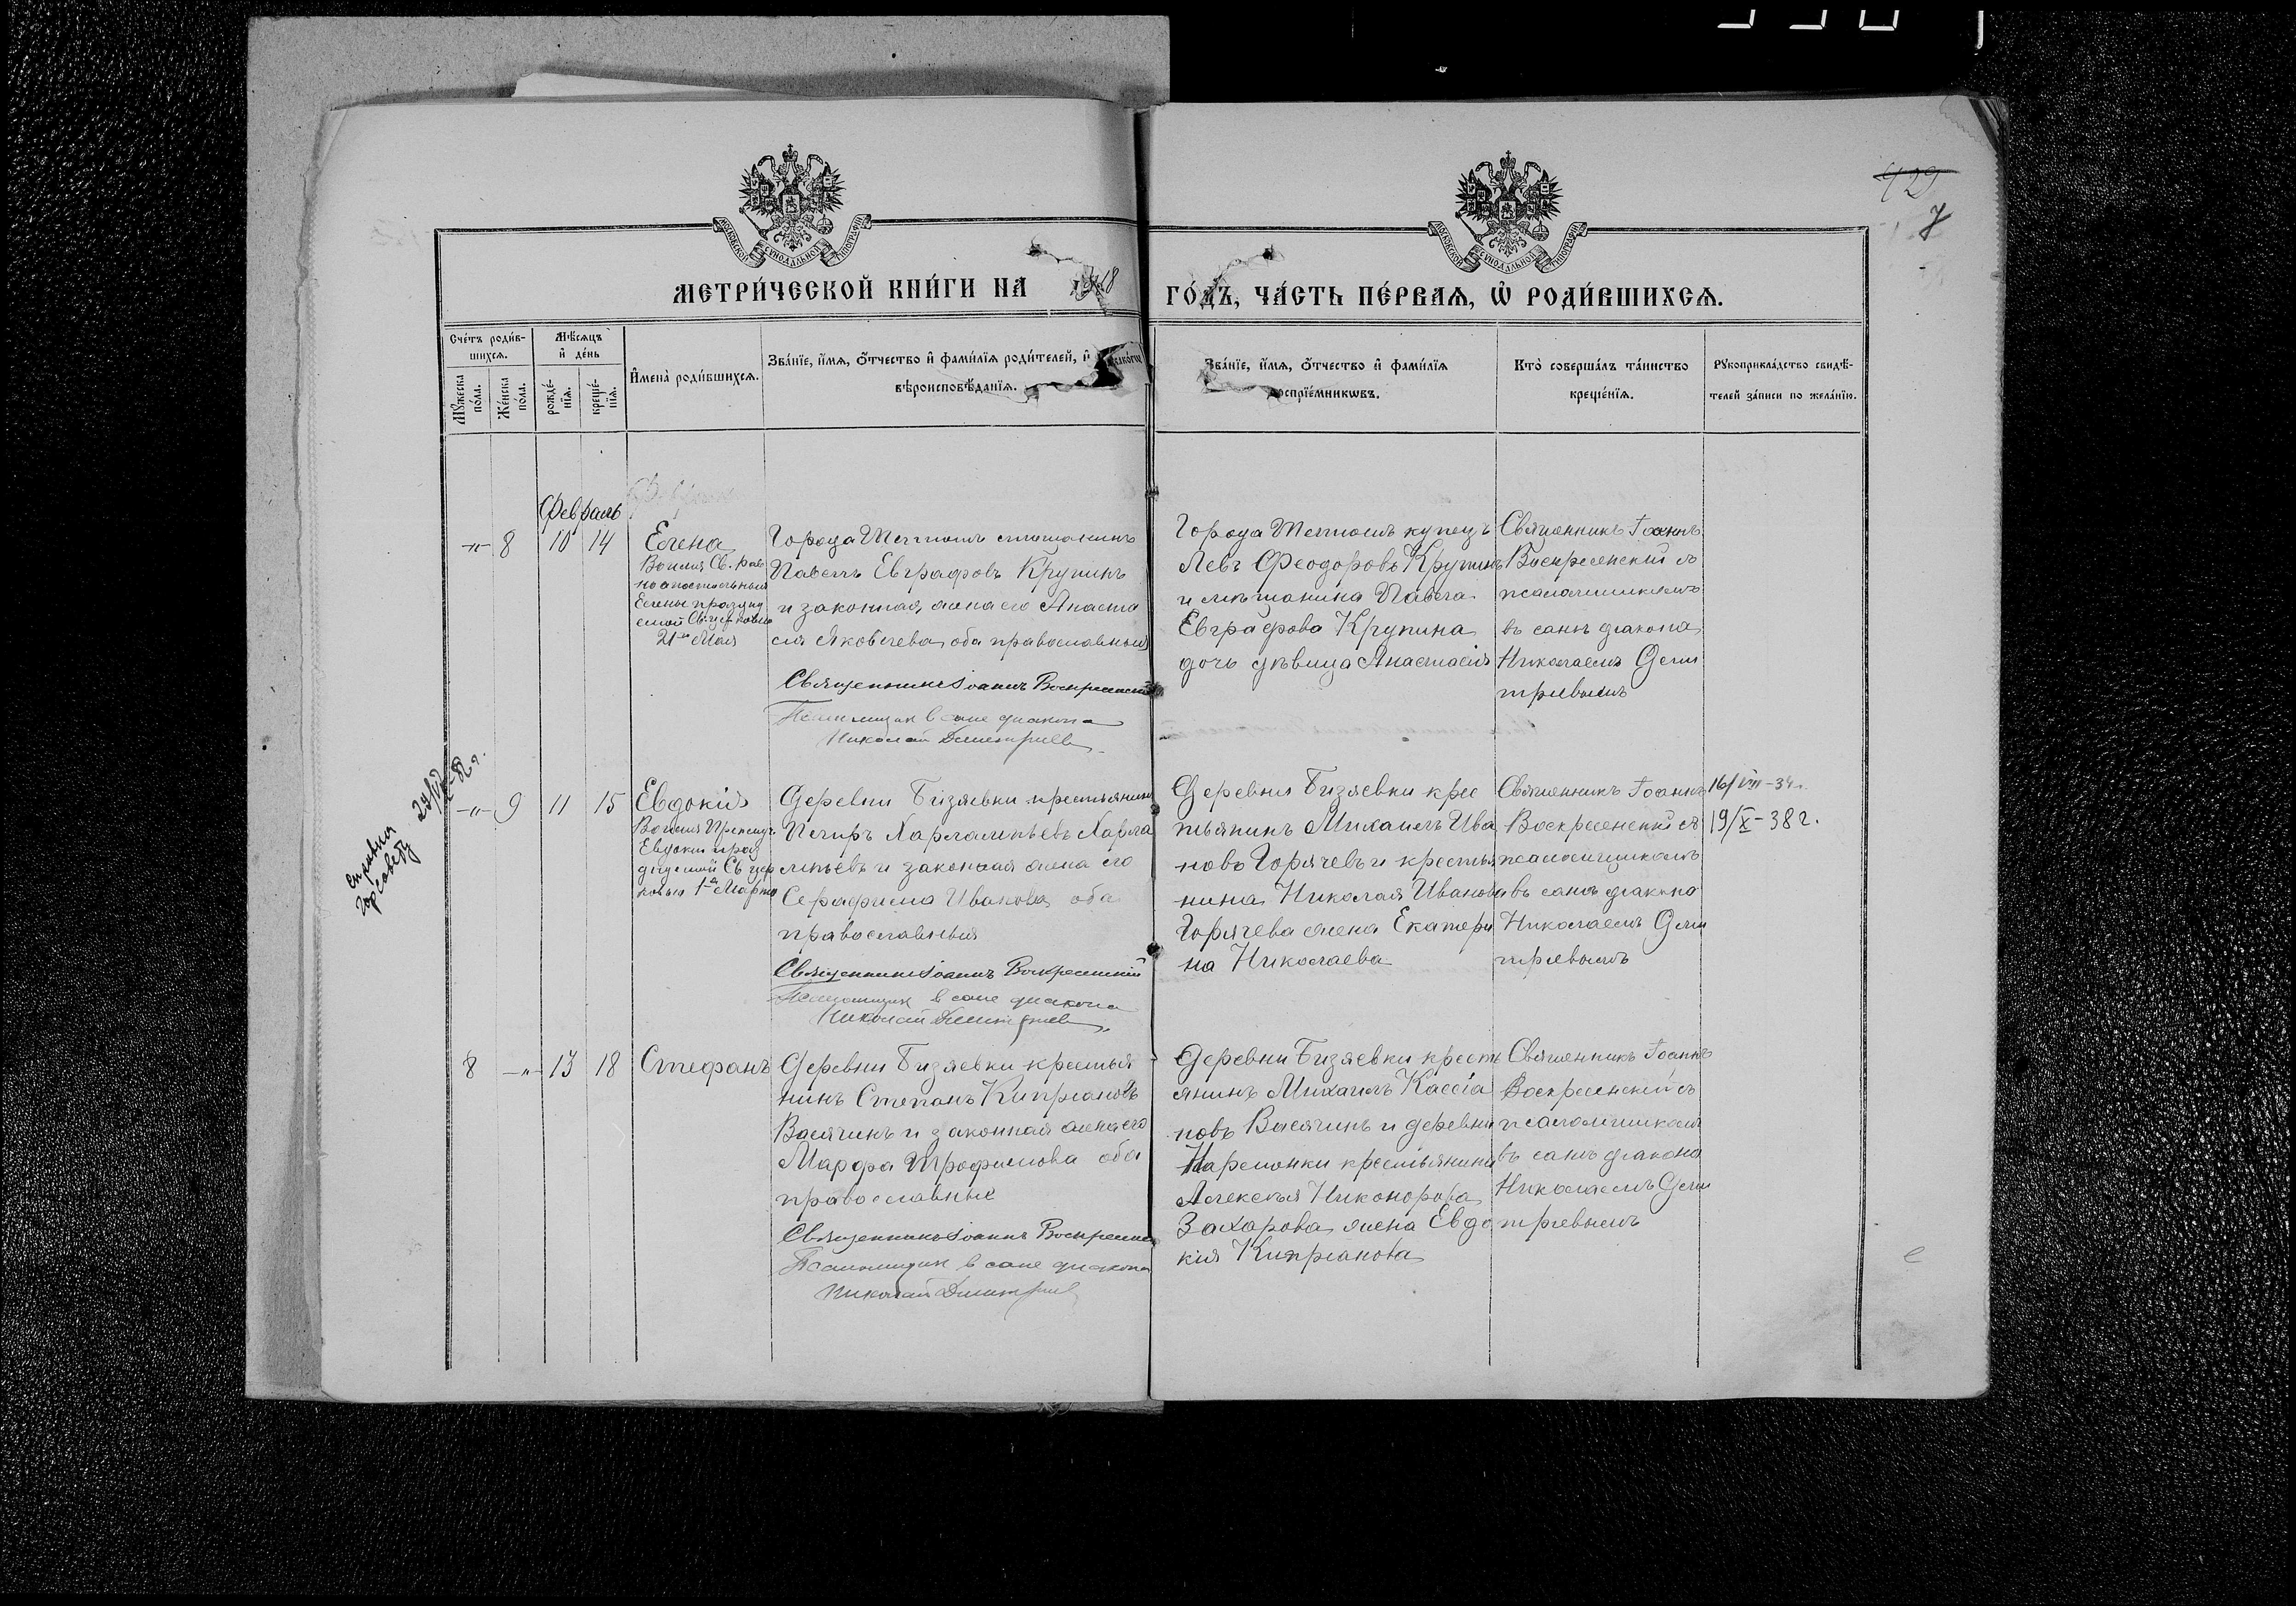 729
7
МЕТРИ́ЧЕСКОЙ КНИ́ГИ НА 1918 ГО́ДЪ, ЧА́СТЬ ПЕ́РВАѦ, Ѡ҆ РОДИ́ВШИХСѦ.
Сче́тъ роди́в-
шихсѧ.
Мꙋ́жеска по́ла.
Же́нска по́ла.
Мѣ́сѧцъ
и҆ де́нь
рожде́-
нїѧ.
креще́-
нїѧ.
И҆мена̀ роди́вшихсѧ.
Зва́нїе, и҆́мѧ, ѻ҆́тчество и҆ фами́лїѧ роди́телей, и҆
вѣроисповѣ́данїѧ.
Зва́нїе, и҆́мѧ, ѻ҆́тчество и҆ фами́лїѧ
воспрїе́мникѡвъ.
Кто̀ соверша́лъ та́инство
креще́нїѧ.
Рꙋкоприкла́дство свидѣ́-
телей за́писи по жела́нїю.
Февраль
-"- 8 10 14
Елена
Во имя Св. рав
ноапостольныя
Елены праздну
емой Св. церковью
21го Мая
Города мещанинъ
Павелъ Евграфовъ Крупинъ
и законная жена его Анаста
сія Яковлева, оба православныя
Священникъ Іоаннъ Воскресенскій
Псаломщик в сане диакона
Николай Димитриев
Города купецъ
Левъ Феодоровъ Крупинъ
и мѣщанина Павла
Евграфова Крупина
дочь дѣвица Анастасія
Священникъ Іоаннъ
Воскресенскій съ
псаломщикомъ
въ санѣ діакона
Николаемъ Дими
тріевымъ
справка
горсовету
-"- 9 11 15
Евдокія
Во имя Препмуч.
Евдокіи праз
днуемой Св цер
ковью 1го Марта
Деревни Бизяевки крестьянинъ
Петръ Харлампіевъ Харла
мпіевъ и законная жена его
Серафима Иванова оба
православныя
Священникъ Іоаннъ Воскресенскій
Псаломщик в сане диакона
Николай Димитриев
Деревни Бизяевки крес
тьянинъ Михаилъ Ива
новъ Горячевъ и крестья
нина Николая Иванова
Горячева жена Екатери
на Николаева
Священникъ Іоаннъ
Воскресенскій съ
псаломщикомъ
въ санѣ діакона
Николаемъ Дими
тріевымъ
16/VIII-34г.
19/X-38г.
8 -"- 13 18
Стефанъ
Деревни Бизяевки крестья
нинъ Степанъ Кипріановъ
Васячинъ и законная жена его
Марфа Трофимова оба
православные
Священникъ Іоаннъ Воскресенск
Псаломщик в сане диакона
Николай Димитриев
Деревни Бизяевки кресть
янинъ Михаилъ Кассіа
новъ Васячинъ и деревни
крестьянина
Алексѣя Никонорова
Захарова жена Евдо
кія Кипріанова
Священникъ Іоаннъ
Воскресенскій съ
псаломщикомъ
въ санѣ діакона
Николаемъ Дими
тріевымъ